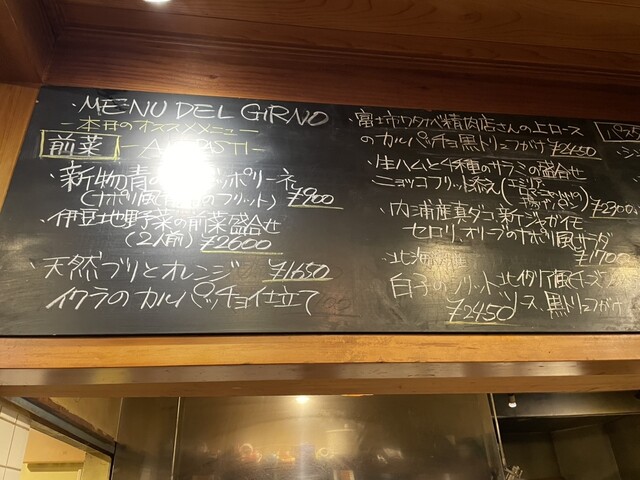 ・MENU DEL GIRNO
-本日のオススメメニュー-
前菜 -A
STI-
・新物青の
ッポリーネ
(ナポリ風
のフリット) ¥900
・伊豆地野菜の前菜盛合せ
(2人前) ¥2600
・天然ブリとオレンジ ¥1650
イクラのカルパッチョ仕立て
・富士市
精肉店さんの上ロース
のカルパッチョ黒トリュフがけ ¥2450
・生ハムと4種のサラミの盛合せ
ニョッコフリット添え(エミリア
¥2300
・内浦産真ダコ、新ジャガイモ
セロリ、オリーブのナポリ風サラダ
¥1700
・北海
白子のフリット 北イタリア風チーズ
ソース、黒トリュフがけ
¥2450